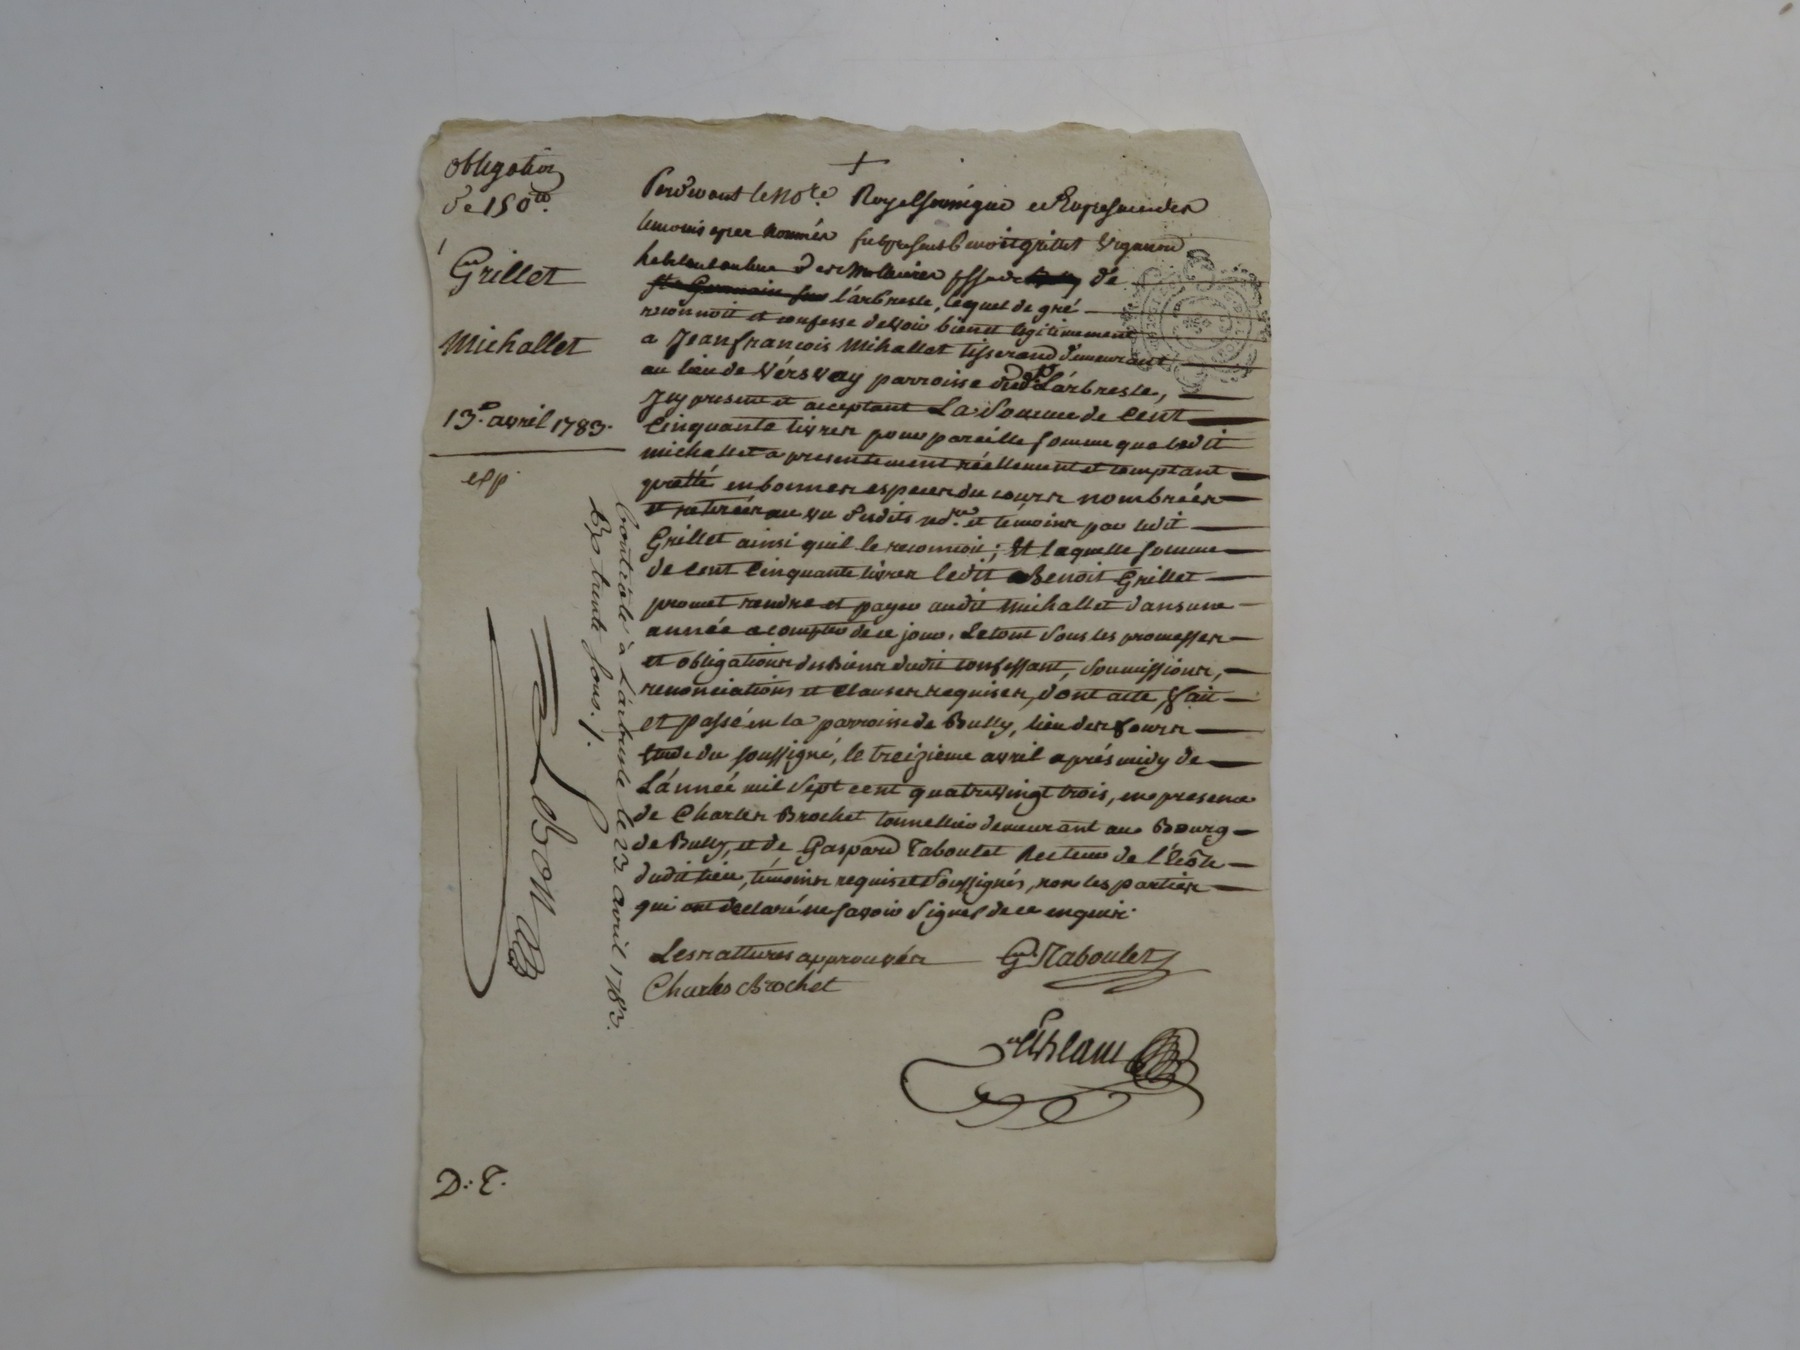 obligation
de 150
Grillet
Michallet
13. avril 1783.
exp
+
Pardevant le No.re Royal soussigné et En presence des
temoins apres nommés fut present Benoit Grillet vigneron
habitant au lieu des Molhieres psse de de
st Germain sur l'arbresle, lequel de gré
reconnoit et confesse devoir bien et legitimement
a Jean françois Mihallet tisserand demeurant
au lieu de Versvay parroisse dud. L'arbresle,
Icy present et acceptant La Somme de Cent
Cinquante livres pour pareille somme que ledit
michallet a presentement réellement et comptant
pretté en bonnes especes du cours nombrées
et retirées au vu desdits no.re et temoins par ledit
Grillet ainsi qu'il le reconnoit; Et laquelle somme
de cent Cinquante livres ledit Benoit Grillet
promet rendre et payer audit Michallet dans une
année a compter de ce jour. Le tout Sous les promesses
et obligations des Biens dudit confessant, soumissions,
renonciations et Clauses requises, dont acte, fait
et passé en la parroisse de Bully, lieu des fours
étude du soussigné, le treizieme avril après midy de
L'année mil Sept cent quatrevingt trois, en presence
de Charles Brochet tonnellier demeurant au Bourg
de Bully, et de Gaspard Taboulet Recteur de l'Ecôle
dudit lieu, témoins requis et Soussignés, non les parties
qui ont declaré ne savoir Signer de ce enquis.
Les rattures approuvées G. Taboulet
Charles Brochet
Contrôlé à L'arbresle le 23 avril 1783.
trente sous.
D. E.